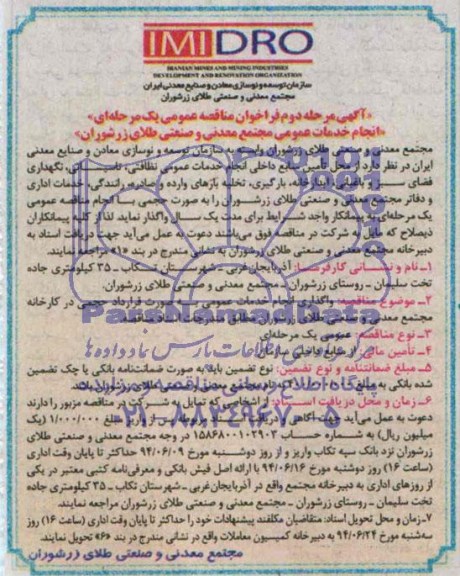 IMIDRO
IRANIAN MINES AND MINING INDUSTRIES
DEVELOPMENT AND RENOVATION ORGANIZATION
سازمان توسعه و نوسازی معادن و صنایع معدنی ایران
مجتمع معدنی و صنعتی طلای زرشوران
«آگهی مرحله دوم فراخوان مناقصه عمومی یک مرحله‌ای»
«انجام خدمات عمومی مجتمع معدنی و صنعتی طلای زرشوران»
مجتمع معدنی و صنعتی طلای زرشوران وابسته به سازمان توسعه و نوسازی معادن و صنایع معدنی
ایران در نظر دارد از محل تأمین منابع داخلی انجام خدمات عمومی نظافتی، نگهداری
فضای سبز و باغبانی، آبدارخانه، بارگیری، تخلیه بارهای وارده و صادره، رانندگی، خدمات اداری
و دفاتر مجتمع معدنی و صنعتی طلای زرشوران را به صورت حجمی با انجام مناقصه عمومی
یک مرحله‌ای به پیمانکار واجد شرایط برای مدت یک سال واگذار نماید لذا از کلیه پیمانکاران
ذیصلاح که مایل به شرکت در مناقصه فوق می‌باشند دعوت به عمل می‌آید جهت دریافت اسناد به
دبیرخانه مجتمع معدنی و صنعتی طلای زرشوران به نشانی مندرج در بند «۱» مراجعه نمایند.
۱ـ نام و نشانی کارفرما: آذربایجان‌غربی ـ شهرستان تکاب ـ ۳۵ کیلومتری جاده
تخت سلیمان ـ روستای زرشوران ـ مجتمع معدنی و صنعتی طلای زرشوران.
۲ـ موضوع مناقصه: واگذاری انجام خدمات عمومی به صورت قرارداد حجمی در کارخانه
مجتمع معدنی و صنعتی طلای زرشوران مطابق مندرجات اسناد مناقصه.
۳ـ نوع مناقصه: عمومی یک مرحله‌ای
۴ـ تأمین مالی: از منابع داخلی سازمان
۵ـ مبلغ ضمانتنامه و نوع تضمین: نوع تضمین باید به صورت ضمانت‌نامه بانکی یا چک تضمین
شده بانکی به مبلغ به نام مجتمع معدنی و صنعتی طلای زرشوران باشد.
۶ـ زمان و محل دریافت اسناد: از اشخاصی که تمایل به شرکت در مناقصه مزبور را دارند
دعوت به عمل می‌آید جهت آگاهی و دریافت اسناد مربوطه پس از واریز مبلغ ۱/۰۰۰/۰۰۰ (یک
میلیون ریال) به شماره حساب ۱۵۸۶۸۰۰۱۰۲۹۰۳ در وجه مجتمع معدنی و صنعتی طلای
زرشوران نزد بانک سپه تکاب واریز و از روز دوشنبه مورخ ۹۴/۰۶/۰۹ حداکثر تا پایان وقت اداری
(ساعت ۱۶) روز دوشنبه مورخ ۹۴/۰۶/۱۶ با ارائه اصل فیش بانکی و معرفی‌نامه کتبی معتبر در یکی
از روزهای اداری به دبیرخانه مجتمع واقع در آذربایجان‌غربی ـ شهرستان تکاب ـ ۳۵ کیلومتری جاده
تخت سلیمان ـ روستای زرشوران ـ مجتمع معدنی و صنعتی طلای زرشوران مراجعه نمایند.
۷ـ زمان و محل تحویل اسناد: متقاضیان مکلفند پیشنهادات خود را حداکثر تا پایان وقت اداری (ساعت ۱۶) روز
سه‌شنبه مورخ ۹۴/۰۶/۲۴ به دبیرخانه کمیسیون معاملات واقع در نشانی مندرج در بند «۶» تحویل نمایند.
مجتمع معدنی و صنعتی طلای زرشوران
ParsNamadData
۰۲۱-۸۸۳۴۹۶۷۰-۵